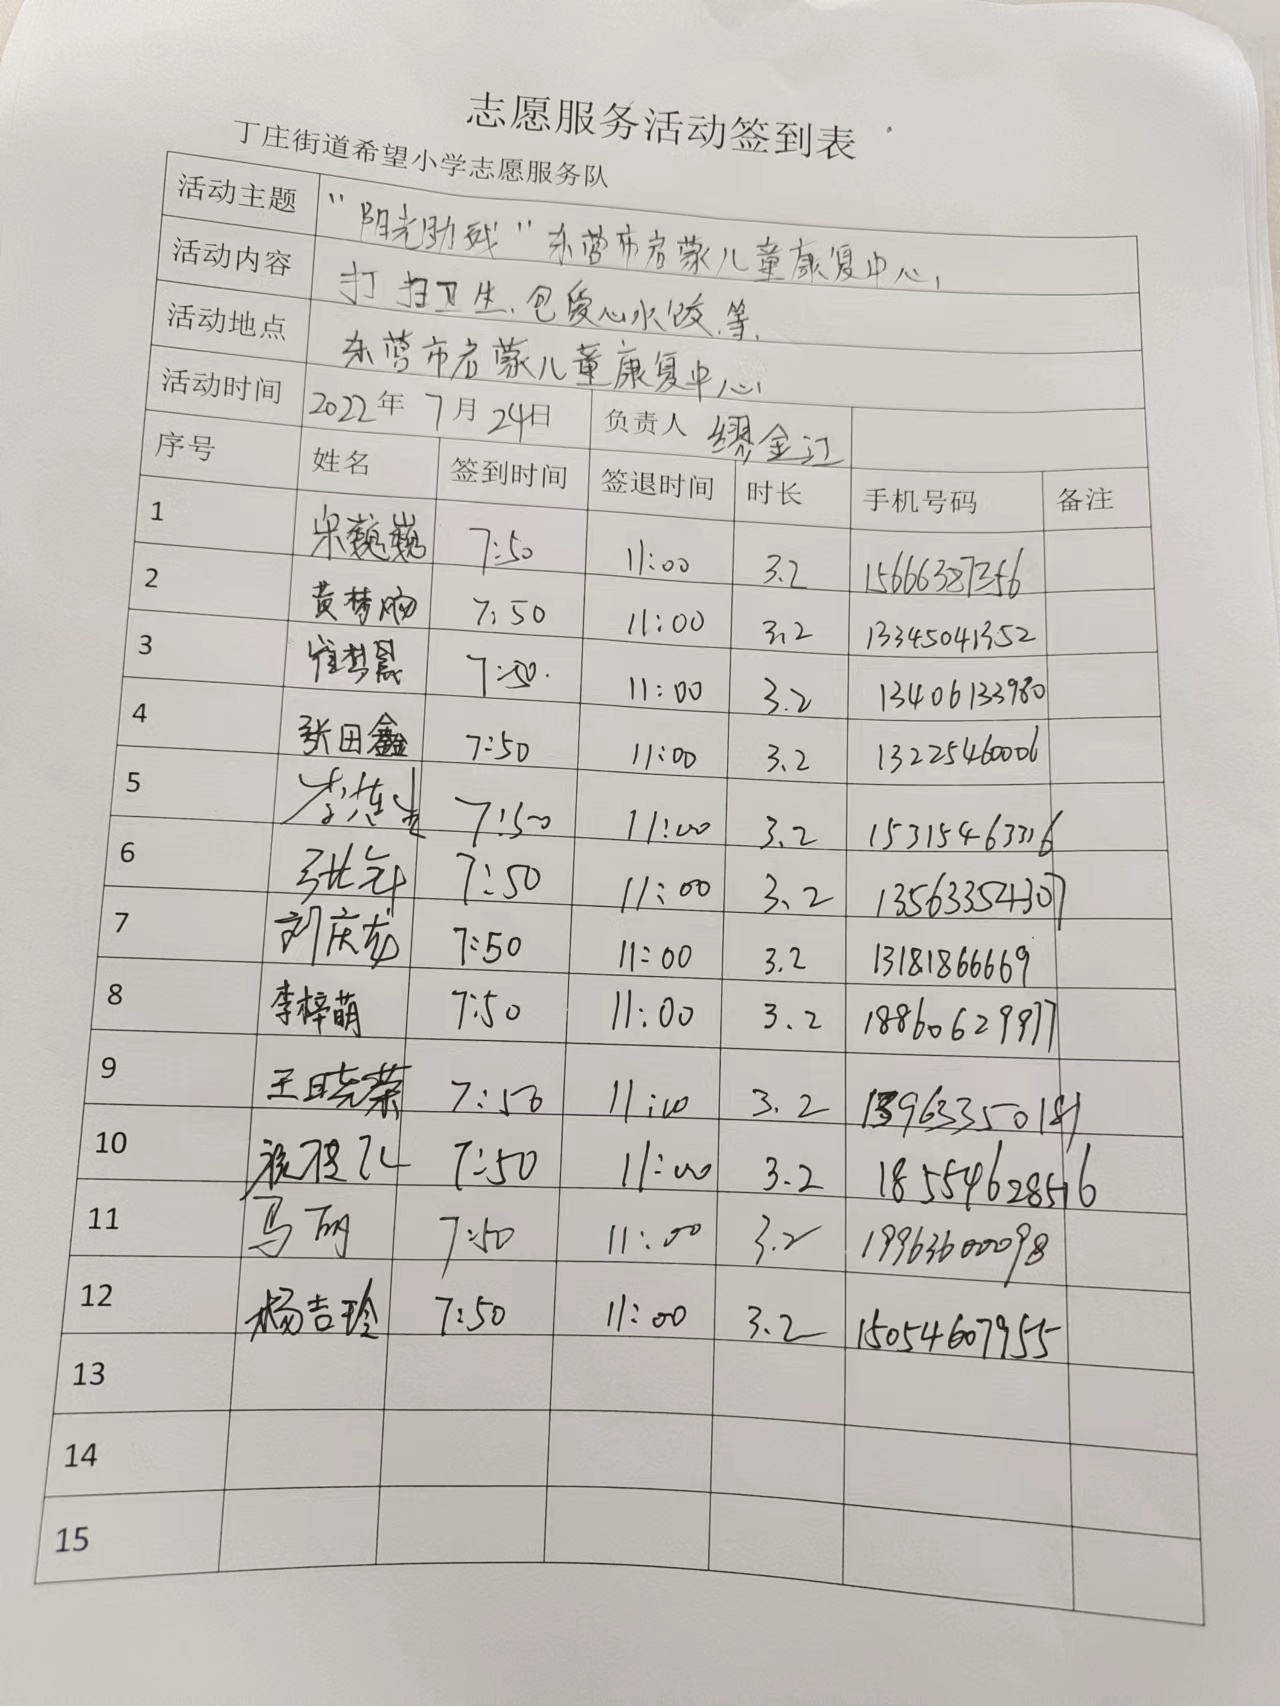 志愿服务活动签到表
丁庄街道希望小学志愿服务队
活动主题 "阳光助残"东营市启蒙儿童康复中心
活动内容 打扫卫生、包爱心水饺等
活动地点 东营市启蒙儿童康复中心
活动时间 2022年 7月 24日 负责人 缪金江
序号 姓名 签到时间 签退时间 时长 手机号码 备注
1 宋巍巍 7:50 11:00 3.2
2 黄梦 7:50 11:00 3.2 13345041352
3 崔梦晨 7:50 11:00 3.2 13406133980
4 张田鑫 7:50 11:00 3.2 13225460006
5 李 7:50 11:00 3.2 15315463316
6 张 7:50 11:00 3.2 13563354307
7 刘庆龙 7:50 11:00 3.2 13181866669
8 李梓萌 7:50 11:00 3.2 18860629977
9 王晓荣 7:50 11:00 3.2 13963350181
10 7:50 11:00 3.2 18554628516
11 马丽 7:50 11:00 3.2 19963600098
12 杨吉玲 7:50 11:00 3.2 15054607955
13
14
15